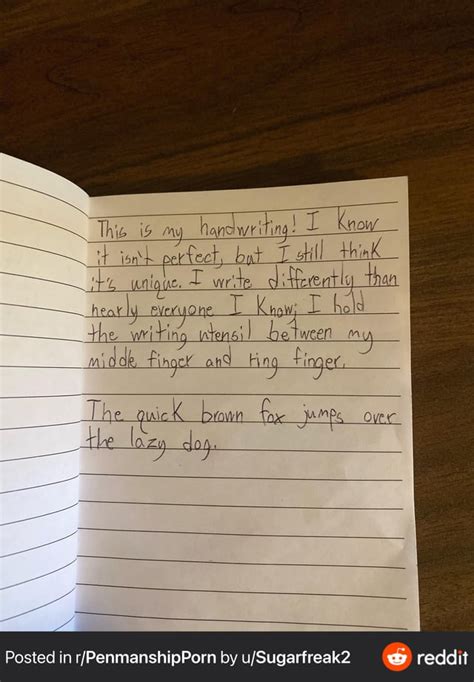 This is my handwriting! I know
it isn't perfect, but I still think
it's unique. I write differently than
nearly everyone I know; I hold
the writing utensil between my
middle finger and ring finger.
The quick brown fox jumps over
the lazy dog.
Posted in r/PenmanshipPorn by u/Sugarfreak2 reddit